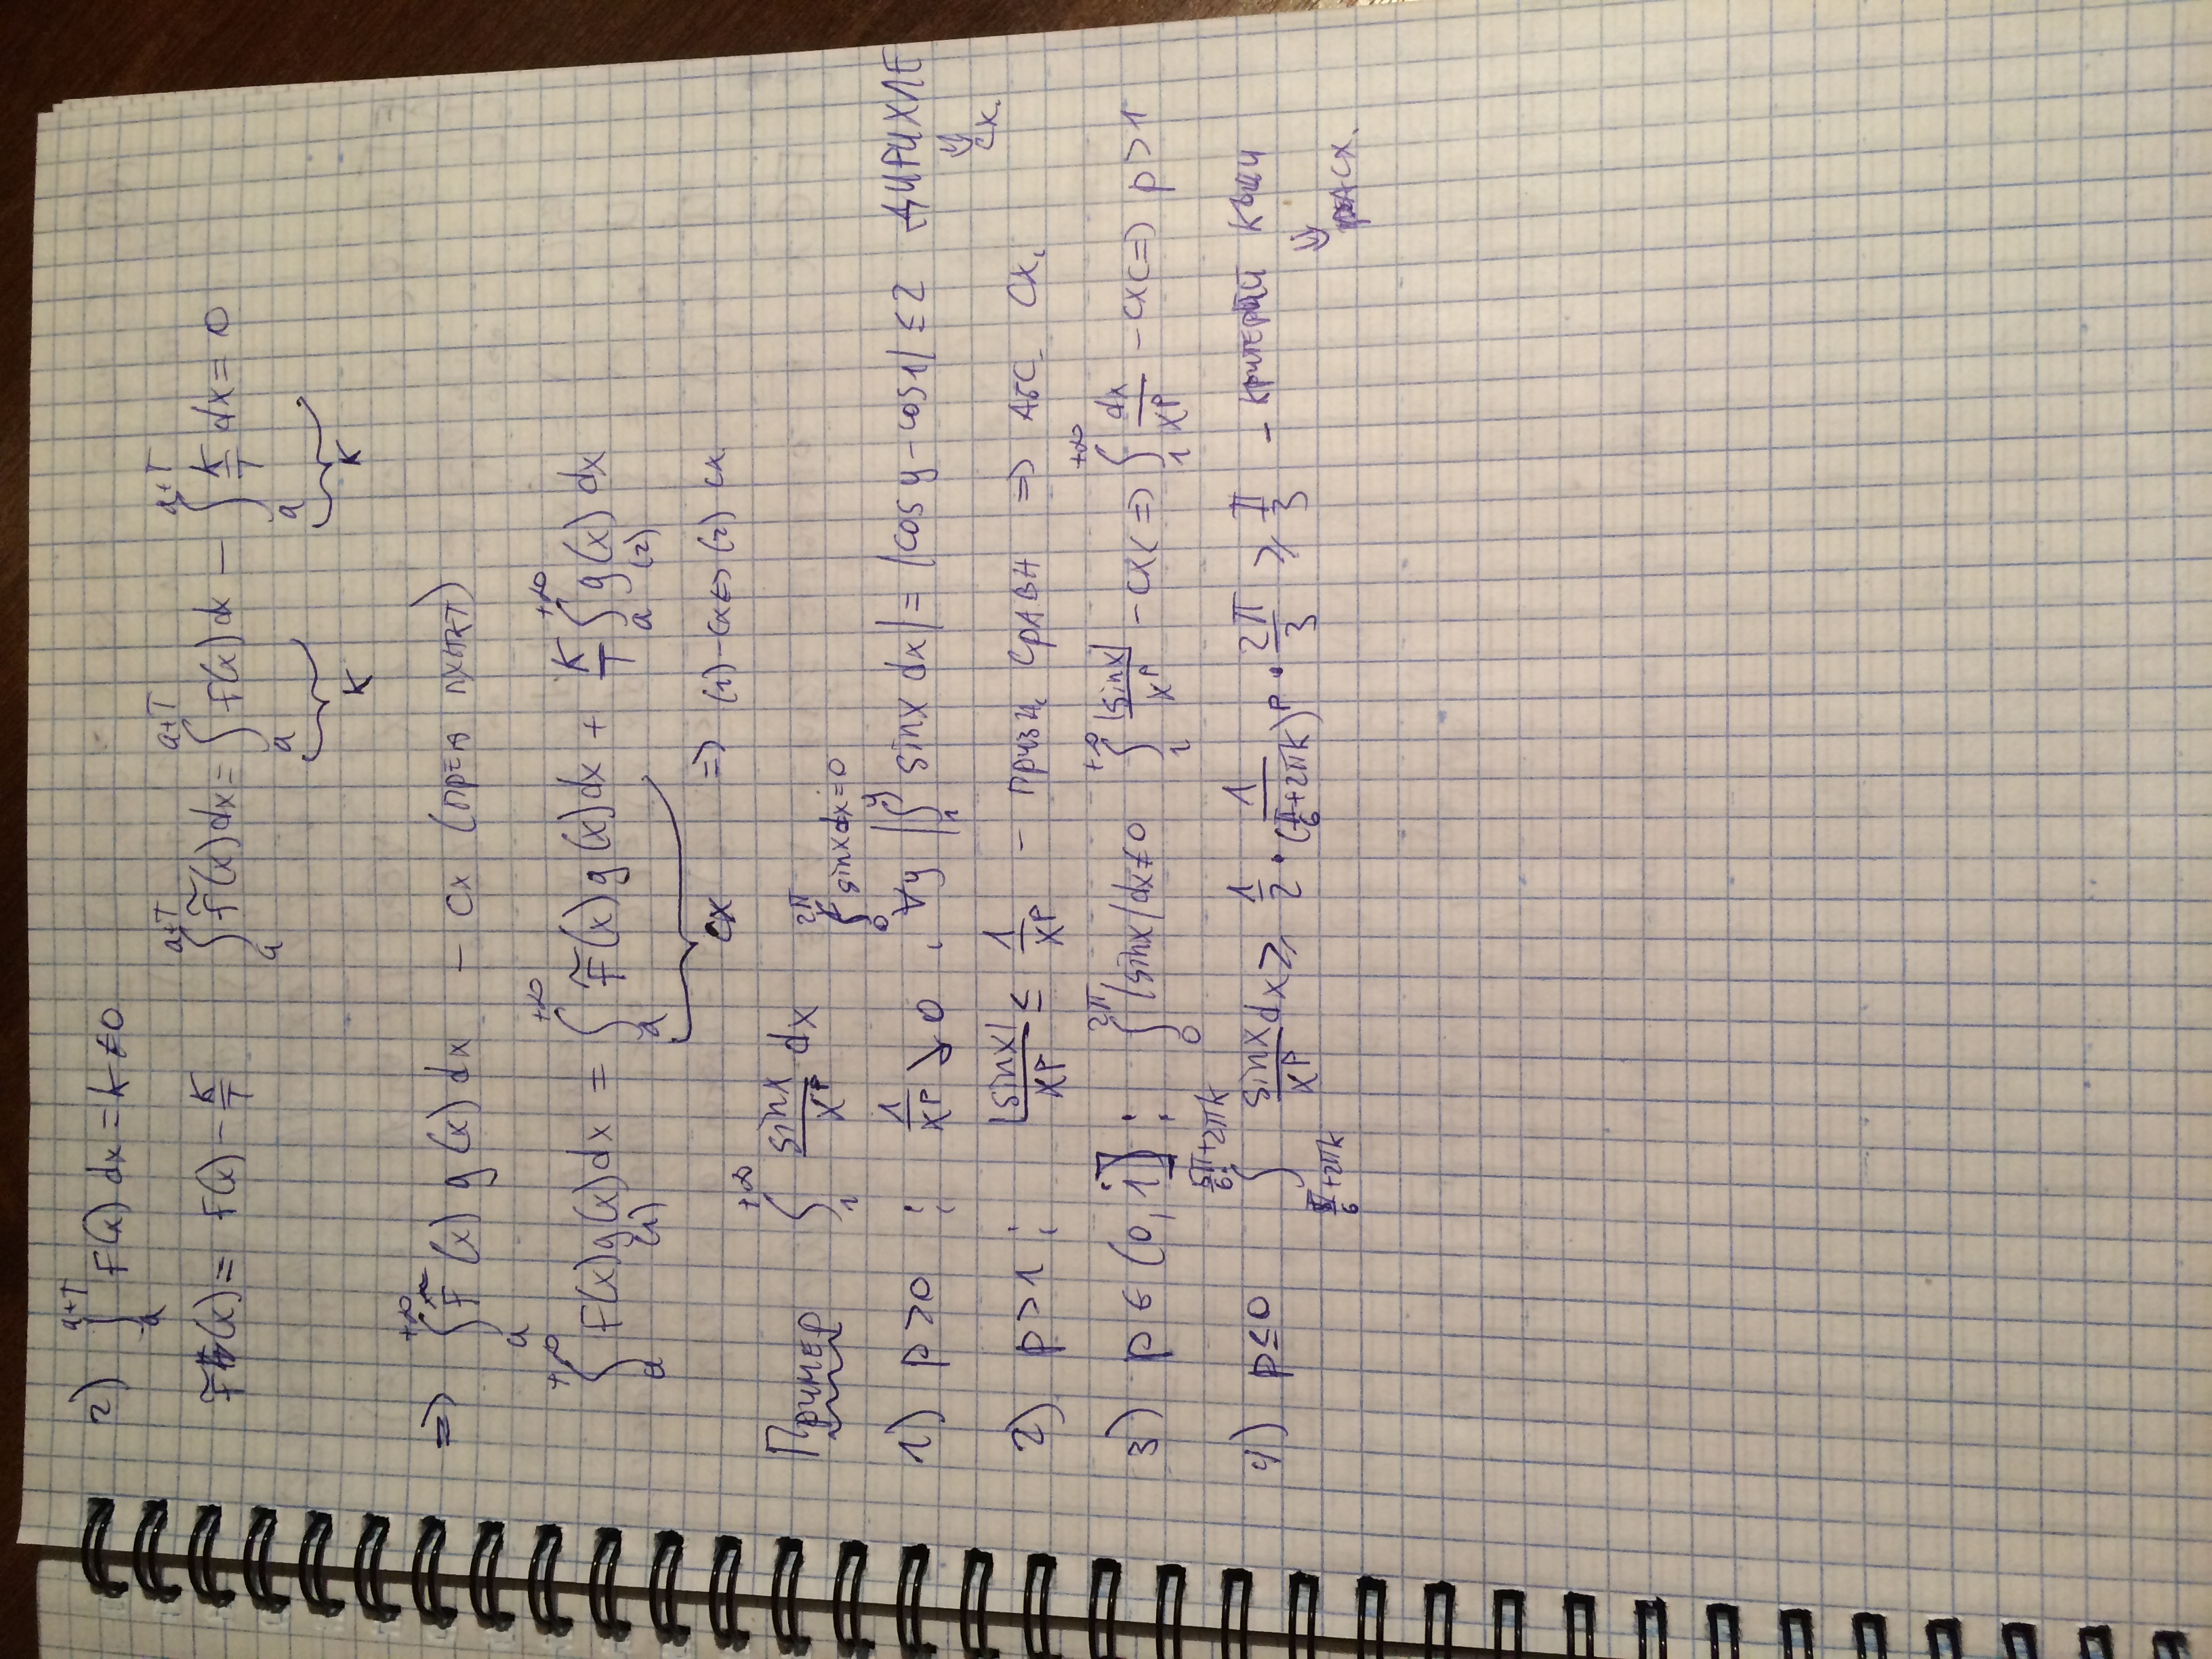 2) ∫_a^{a+T} f(x) dx = K ≠ 0
f̃(x) = f(x) − K/T   ∫_a^{a+T} f̃(x) dx = ∫_a^{a+T} f(x) dx − ∫_a^{a+T} K/T dx = 0
K   K
⇒ ∫_a^{+∞} f̃(x) g(x) dx − сх (пред пункт)
∫_a^{+∞} f(x) g(x) dx = ∫_a^{+∞} f̃(x) g(x) dx + K/T ∫_a^{+∞} g(x) dx
(1)   (2)
сх   ⇒ (1) − сх ⇔ (2) сх
Пример   ∫_1^{+∞} sin x / x^p dx
∫_0^{2π} sin x dx = 0
1) p > 0 : 1/x^p ↘ 0 , ∀y |∫_1^y sin x dx| = |cos y − cos 1| ≤ 2 ДИРИХЛЕ
⇓
сх.
2) p > 1 : |sin x| / x^p ≤ 1/x^p − призн. сравн ⇒ абс. сх.
3) p ∈ (0, 1] : ∫_0^{2π} |sin x| dx ≠ 0   ∫_1^{+∞} |sin x| / x^p − сх ⇔ ∫_1^{+∞} dx / x^p − сх ⇔ p > 1
4) p ≤ 0   ∫_{π/6 + 2πk}^{5π/6 + 2πk} sin x / x^p dx ≥ 1/2 · 1/(π/6 + 2πk)^p · 2π/3 ≥ π/3 − критерий Коши
⇓
расх.